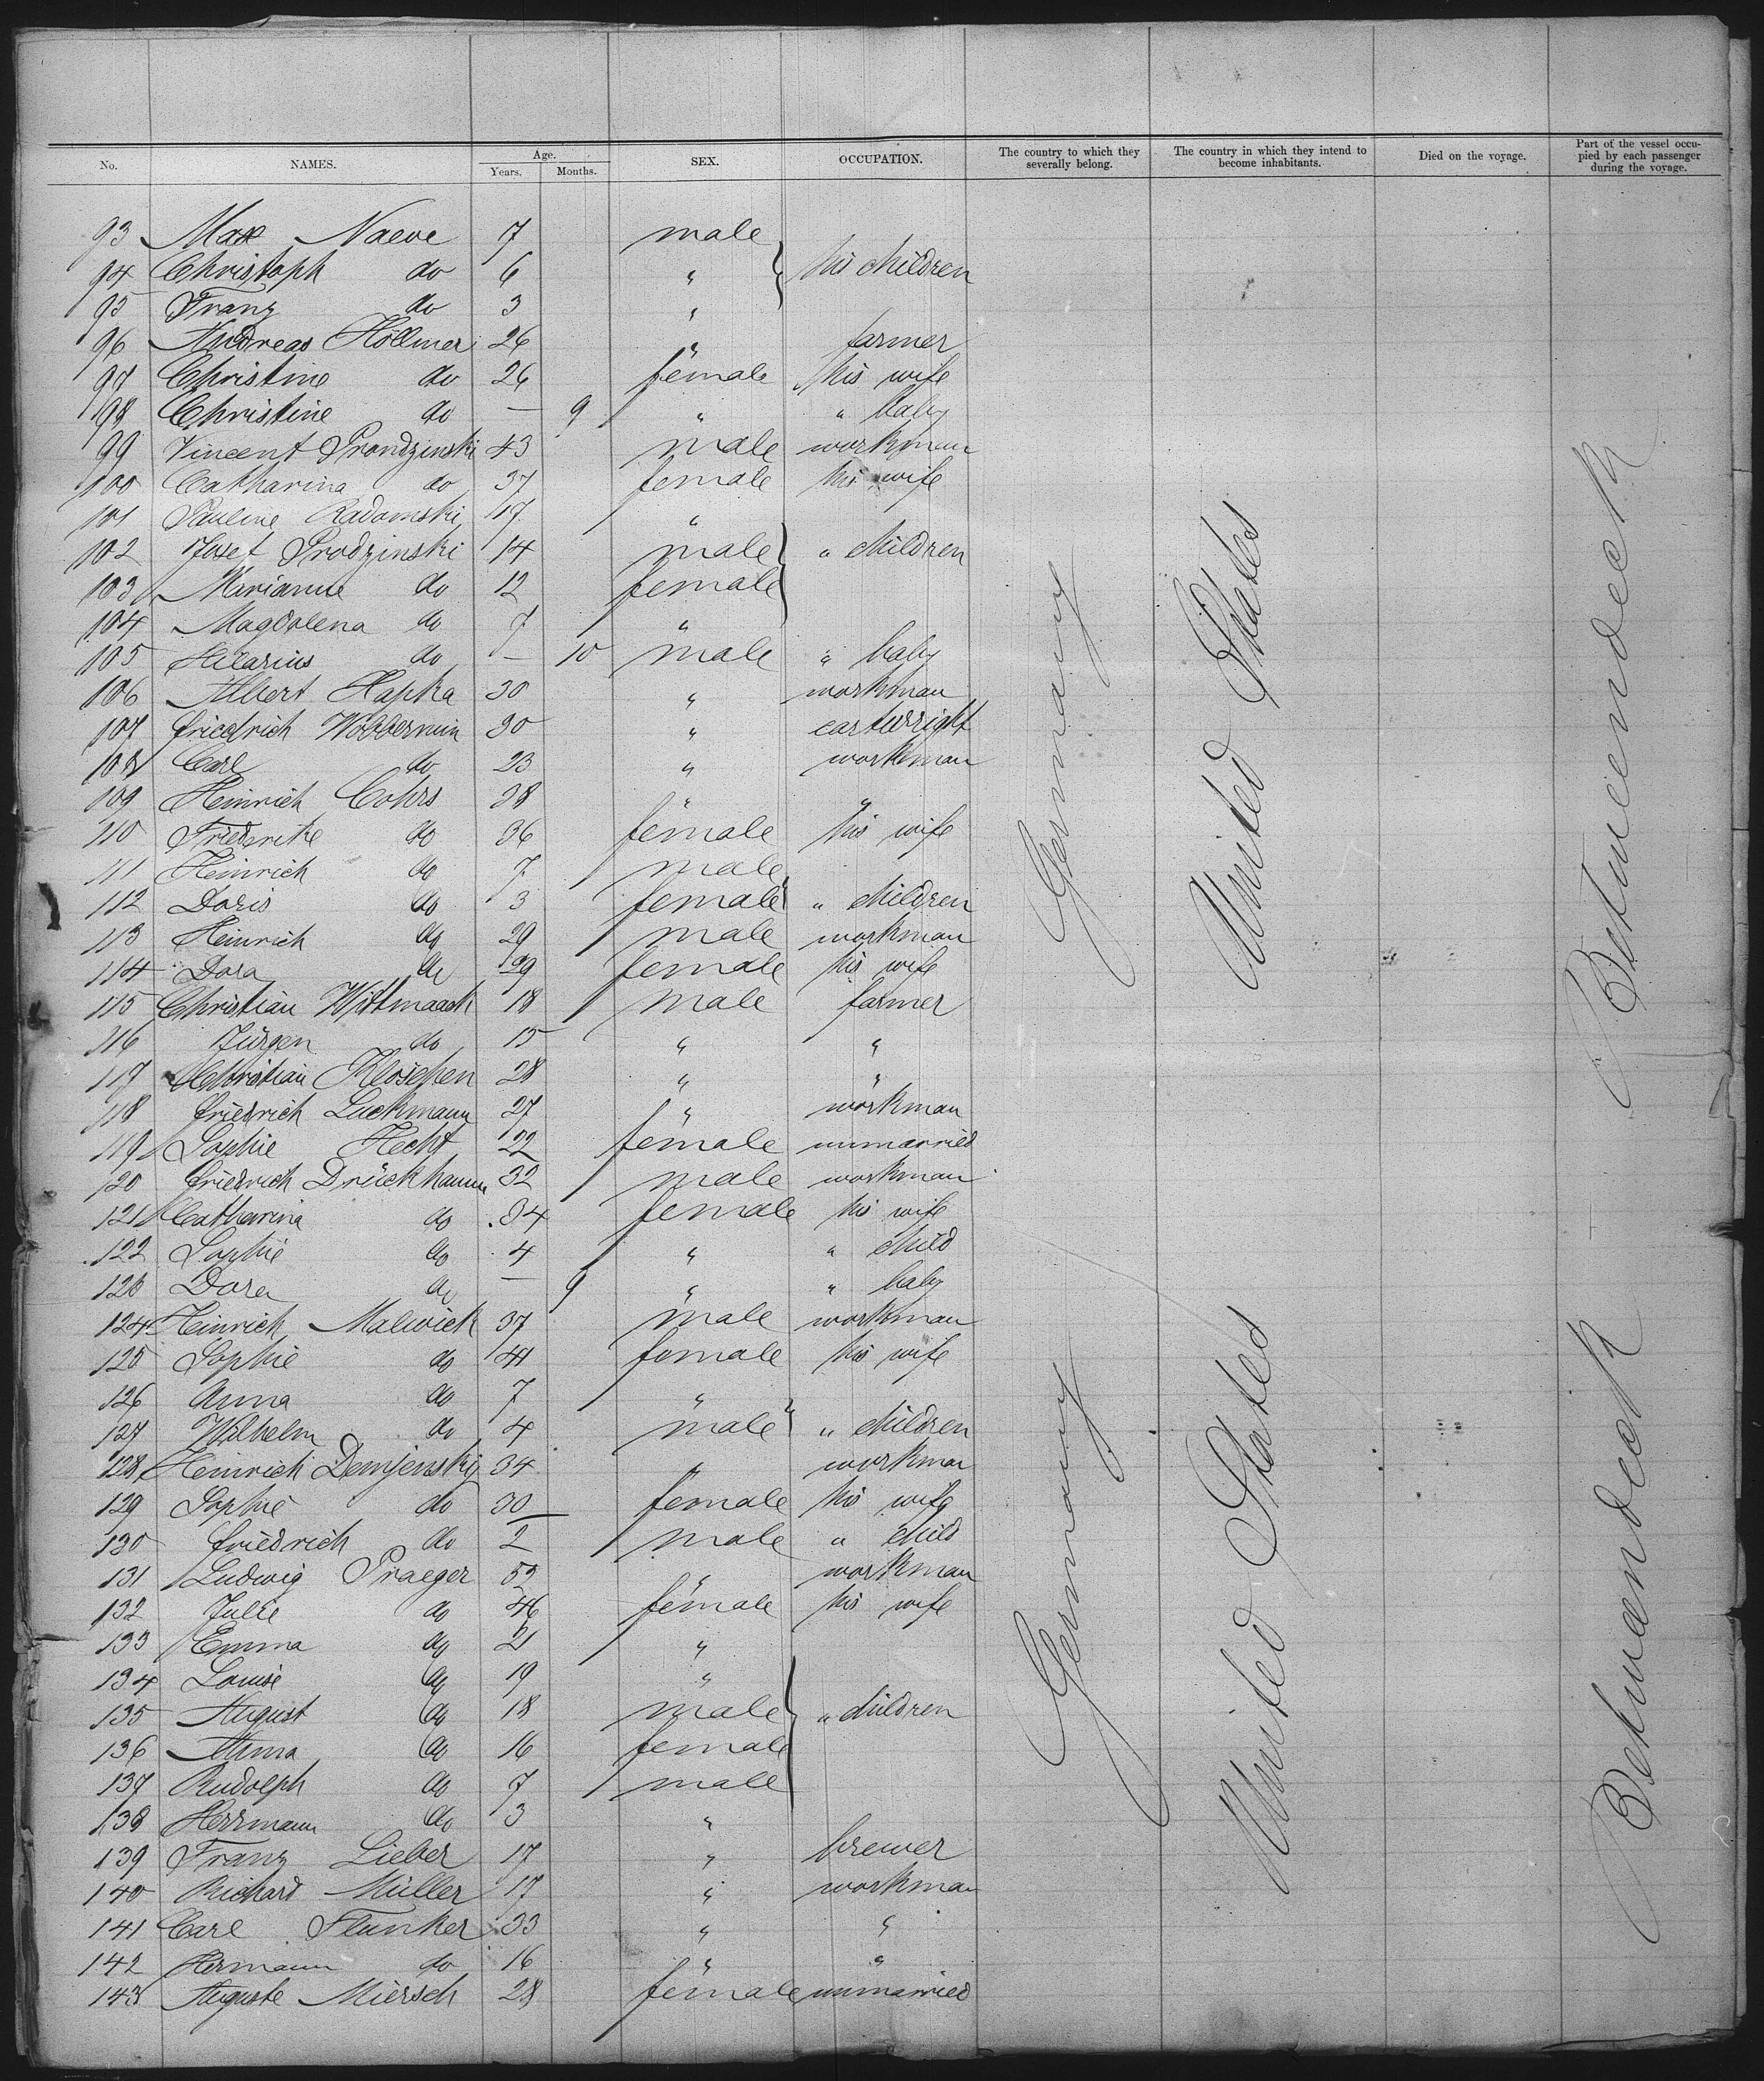 No. NAMES. Age. Years. Months. SEX. OCCUPATION. The country to which they severally belong. The country in which they intend to become inhabitants. Died on the voyage. Part of the vessel occupied by each passenger during the voyage.
93 Max Naeve 7 male
94 Christoph do 6 " his children
95 Franz do 3 "
96 Andreas Höllmer 26 " farmer
97 Christine do 26 female his wife
98 Christine do — 9 " " baby
99 Vincent Prondzinski 43 male workman
100 Catharina do 37 female his wife
101 Pauline Radomski 17 "
102 Josef Prodzinski 14 male " children
103 Marianne do 12 female
104 Magdalena do 7 "
105 Hilarius do — 10 male " baby
106 Albert Hapka 30 " workman
107 Friedrich Wobbermin 30 " cartwright
108 Carl do 23 " workman
109 Heinrich Cohrs 38 " "
110 Friederike do 36 female his wife
111 Heinrich do 7 male
112 Doris do 3 female " children
113 Heinrich do 29 male workman
114 Dora do 29 female his wife
115 Christian Wittmaack 18 male farmer
116 Jürgen do 15 " "
117 Christian Kloschen 28 " "
118 Friedrich Luckmann 27 " workman
119 Sophie Hecht 22 female unmarried
120 Friedrich Drückhamm 32 male workman
121 Catharina do 34 female his wife
122 Sophie do 4 " " child
123 Dora do — 9 " " baby
124 Heinrich Malwick 37 male workman
125 Sophie do 41 female his wife
126 Anna do 7 "
127 Wilhelm do 4 male " children
128 Heinrich Demjenski 34 " workman
129 Sophie do 30 female his wife
130 Friedrich do 2 male " child
131 Ludwig Praeger 52 " workman
132 Julie do 46 female his wife
133 Emma do 21 "
134 Louise do 19 "
135 August do 18 male " children
136 Anna do 16 female
137 Rudolph do 7 male
138 Herrmann do 3 "
139 Franz Lieber 17 " brewer
140 Richard Müller 17 " workman
141 Carl Flunker 33 " "
142 Hermann do 16 " "
143 Auguste Miersch 28 female unmarried
Germany
United States
Betweendeck
Germany
United States
Betweendeck